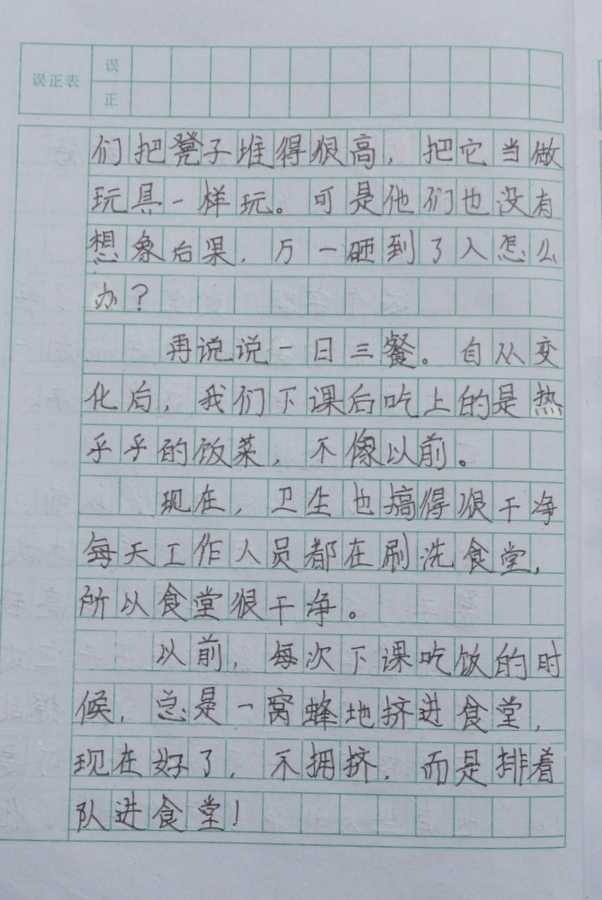 误正表
误
正
们把凳子堆得很高，把它当做
玩具一样玩。可是他们也没有
想象后果，万一砸到了人怎么
办？
再说说一日三餐。自从变
化后，我们下课后吃上的是热
乎乎的饭菜，不像以前。
现在，卫生也搞得很干净
每天工作人员都在刷洗食堂，
所以食堂很干净。
以前，每次下课吃饭的时
候，总是一窝蜂地挤进食堂，
现在好了，不拥挤，而是排着
队进食堂！